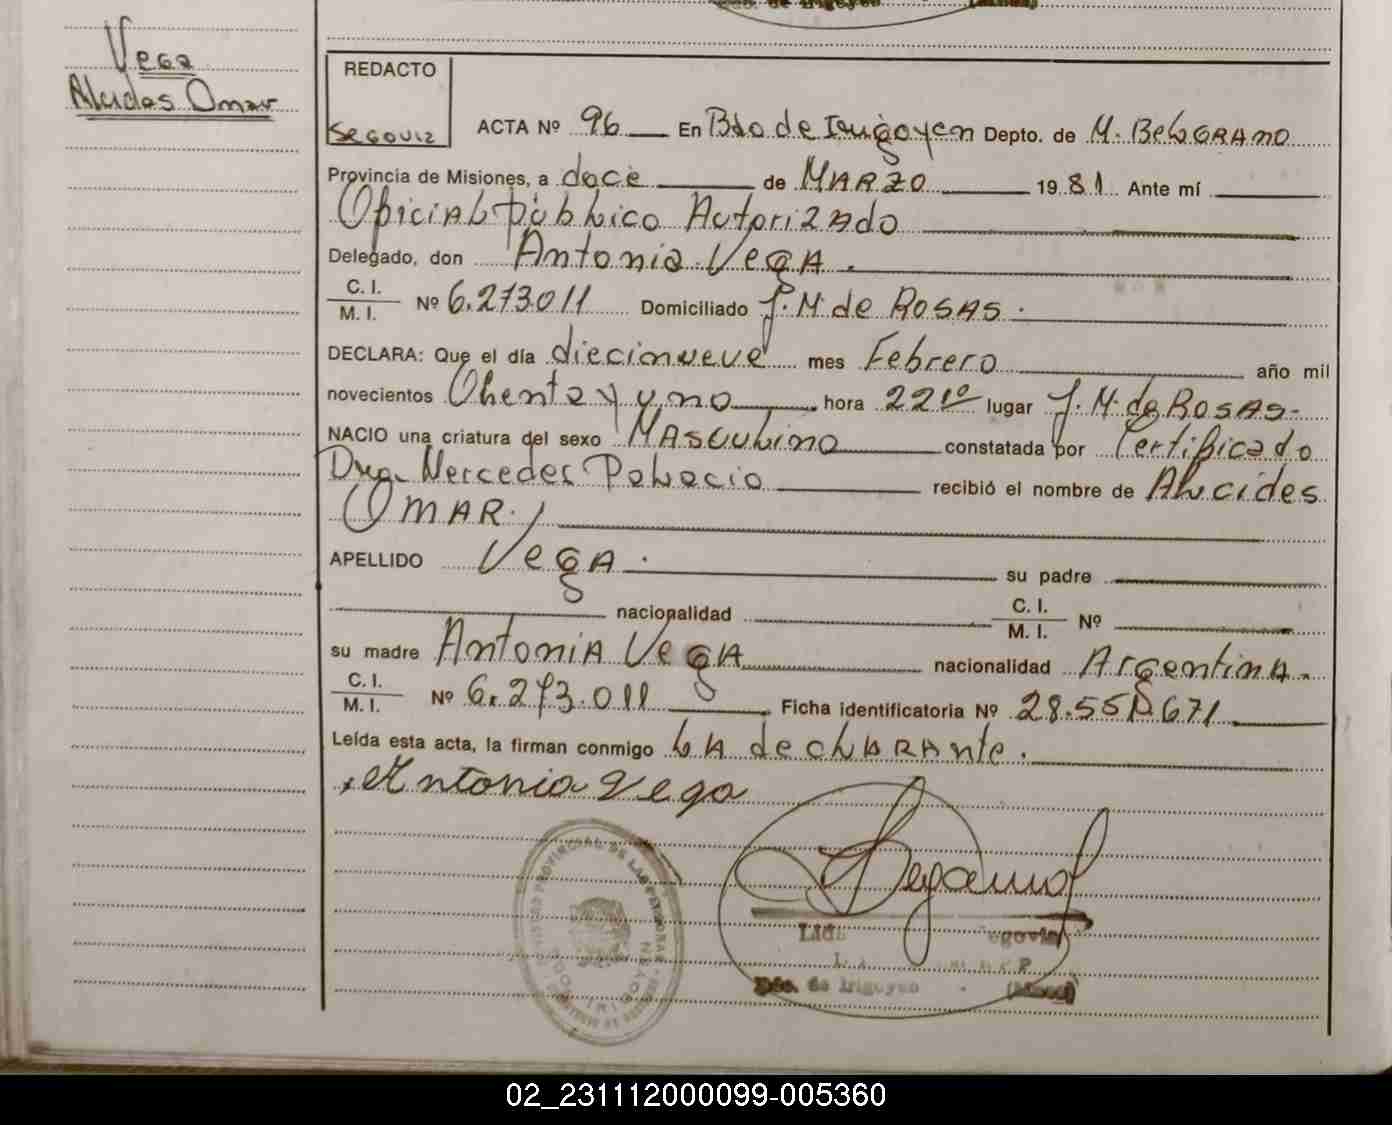 Vega
Alcides Omar
REDACTO
SEGOVIA
ACTA Nº 96 En Bdo de Irigoyen Depto. de M. BELGRANO
Provincia de Misiones, a doce de MARZO 1981 Ante mí
OficiAL público AutorizAdo
Delegado, don Antonia VegA.
C. I.
M. I. Nº 6.273011 Domiciliado J. M. de ROSAS.
DECLARA: Que el día diecinueve mes Febrero año mil
novecientos Ohenta y uno hora 22 10 lugar J. M. de ROSAS-
NACIO una criatura del sexo MAsculino constatada por Certificado
Dra. Mercedes Palacio recibió el nombre de Alcides
OMAR.
APELLIDO VegA. su padre
nacionalidad C. I.
M. I. Nº
su madre AntoniA VegA nacionalidad ArgentinA.
C. I.
M. I. Nº 6.273.011 Ficha identificatoria Nº 28.55 671
Leída esta acta, la firman conmigo LA decLARAnte.
Antonia Vega
Bdo. de Irigoyen (Mnes)
02_231112000099-005360